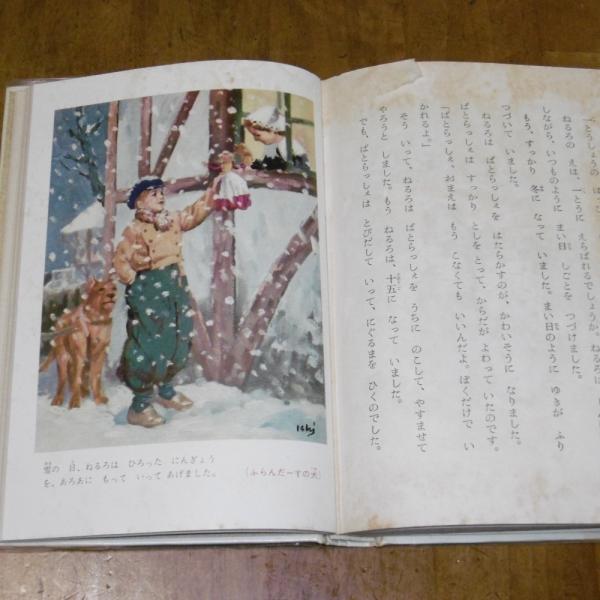 一とうしょうの
ねるろの えは、一とうに えらばれるでしょうか。ねるろは
しながら、いつものように まい日 しごとを つづけました。
もう、すっかり 冬に なって いました。まい日のように ゆきが ふり
つづいて いました。
ねるろは ぱとらっしぇを はたらかすのが、かわいそうに なりました。
ぱとらっしぇは すっかり としを とって、からだが よわって いたのです。
「ぱとらっしぇ、おまえは もう こなくても いいんだよ。ぼくだけで い
かれるよ。」
そう いって、ねるろは ぱとらっしぇを うちに のこして、やすませて
やろうと しました。もう ねるろは、十五に なって いました。
でも、ぱとらっしぇは とびだして いって、にぐるまを ひくのでした。
Ishj
雪の 日、ねるろは ひろった にんぎょう
を、あろあに もって いって あげました。
（ふらんだーすの犬）